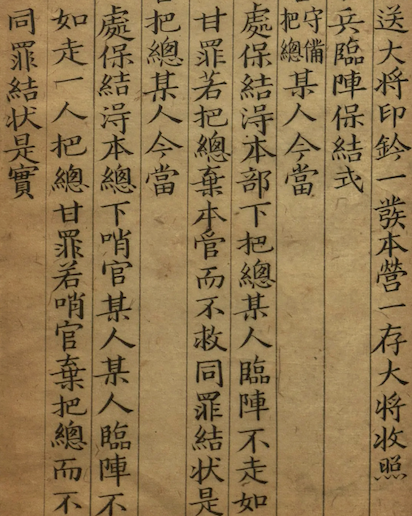 送大将印鈐一發本營一存大将收照
兵臨陣保結式
守備
把總
某人今當
處保結淂本部下把總某人臨陣不走如
甘罪若把總棄本官而不救同罪結状是
把總某人今當
處保結淂本總下哨官某人某人臨陣不
如走一人把總甘罪若哨官棄把總而不
同罪結状是實